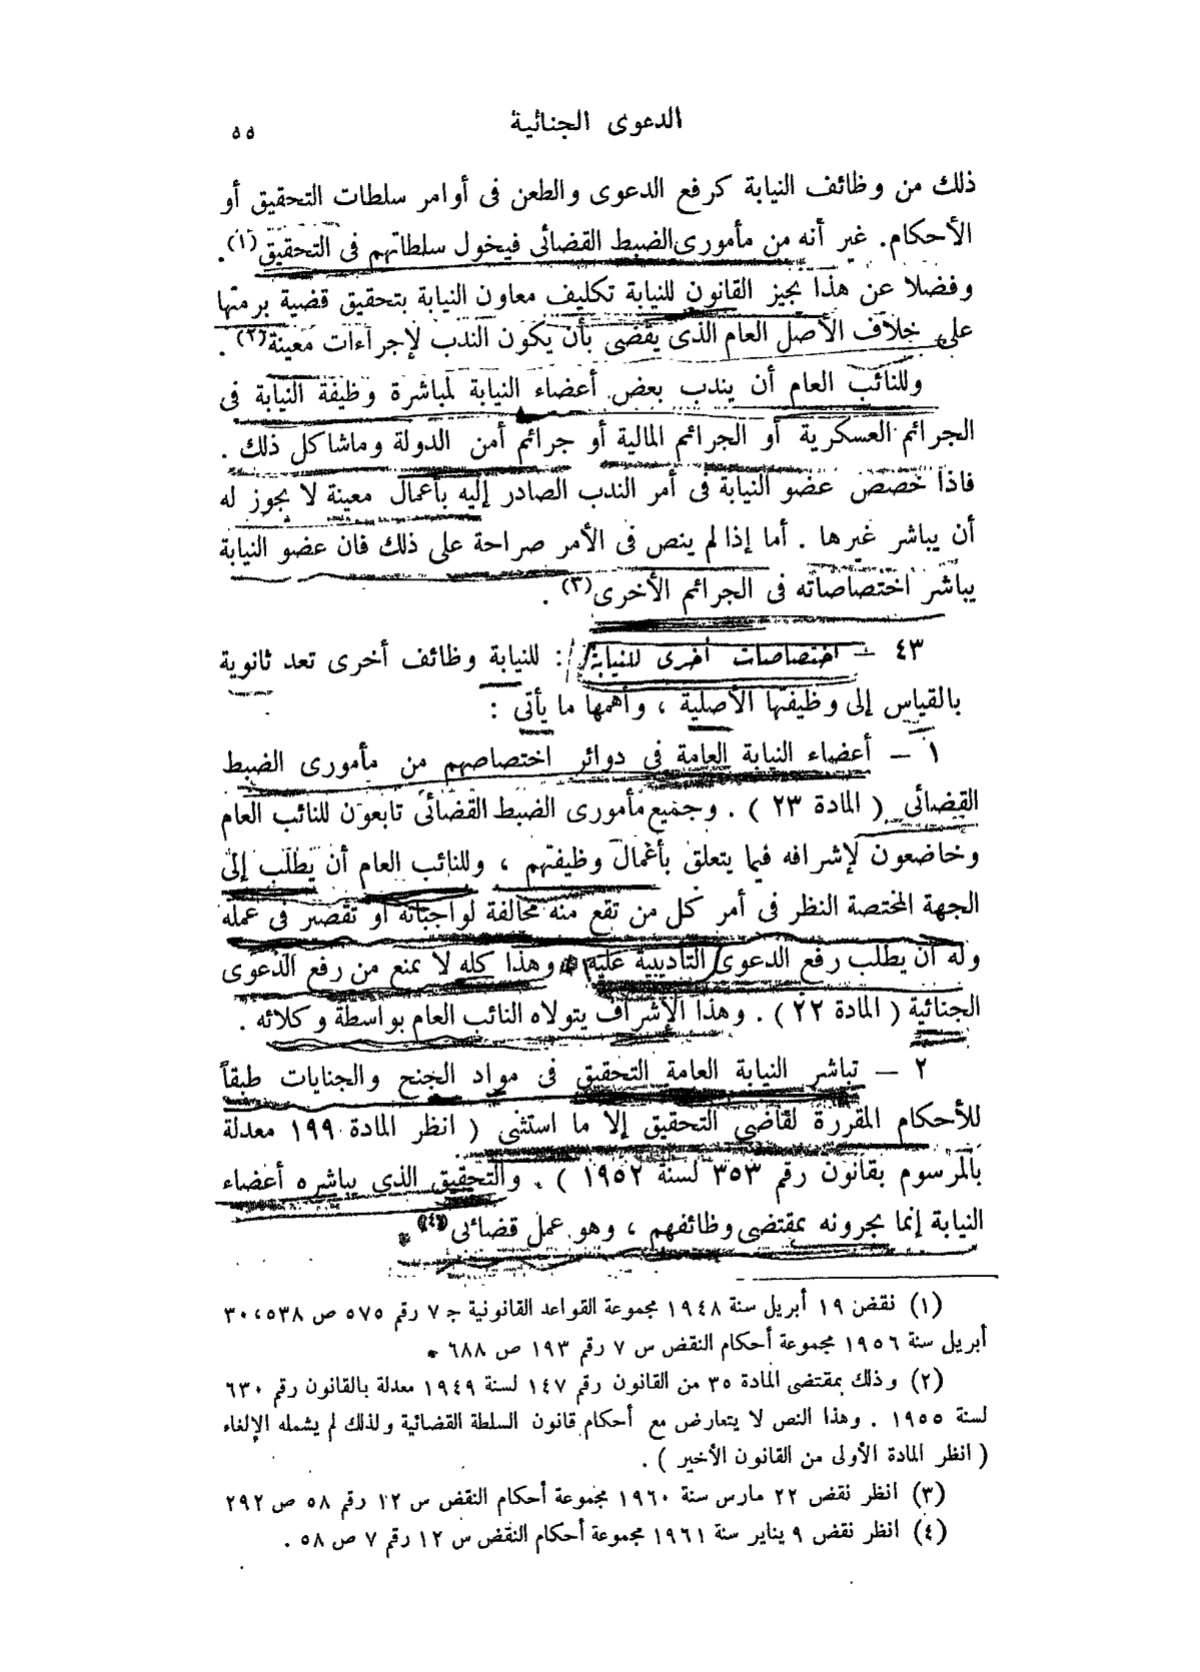 الدعوى الجنائية
٥٥
ذلك من وظائف النيابة كرفع الدعوى والطعن فى أوامر سلطات التحقيق أو
الأحكام. غير أنه من مأمورى الضبط القضائى فيخول سلطاتهم فى التحقيق(١).
وفضلا عن هذا يجيز القانون للنيابة تكليف معاون النيابة بتحقيق قضية برمتها
على خلاف الأصل العام الذى يقضى بأن يكون الندب لإجراءات معينة(٢).
وللنائب العام أن يندب بعض أعضاء النيابة لمباشرة وظيفة النيابة فى
الجرائم العسكرية أو الجرائم المالية أو جرائم أمن الدولة وماشاكل ذلك .
فاذا خصص عضو النيابة فى أمر الندب الصادر إليه بأعمال معينة لا يجوز له
أن يباشر غيرها . أما إذا لم ينص فى الأمر صراحة على ذلك فان عضو النيابة
يباشر اختصاصاته فى الجرائم الأخرى(٣) .
٤٣ – اختصاصات أخرى للنيابة : للنيابة وظائف أخرى تعد ثانوية
بالقياس إلى وظيفتها الأصلية ، وأهمها ما يأتى :
١ – أعضاء النيابة العامة فى دوائر اختصاصهم من مأمورى الضبط
القضائى ( المادة ٢٣ ) . وجميع مأمورى الضبط القضائى تابعون للنائب العام
وخاضعون لإشرافه فيما يتعلق بأعمال وظيفتهم ، وللنائب العام أن يطلب إلى
الجهة المختصة النظر فى أمر كل من تقع منه مخالفة لواجباته أو تقصير فى عمله
وله أن يطلب رفع الدعوى التأديبية عليه وهذا كله لا يمنع من رفع الدعوى
الجنائية ( المادة ٢٢ ) . وهذا الإشراف يتولاه النائب العام بواسطة وكلائه .
٢ – تباشر النيابة العامة التحقيق فى مواد الجنح والجنايات طبقاً
للأحكام المقررة لقاضى التحقيق إلا ما استثنى ( انظر المادة ١٩٩ معدلة
بالمرسوم بقانون رقم ٣٥٣ لسنة ١٩٥٢ ) . والتحقيق الذى يباشره أعضاء
النيابة إنما يجرونه بمقتضى وظائفهم ، وهو عمل قضائى(٤) .
(١) نقض ١٩ أبريل سنة ١٩٤٨ مجموعة القواعد القانونية ج ٧ رقم ٥٧٥ ص ٥٣٨، ٣٠
أبريل سنة ١٩٥٦ مجموعة أحكام النقض س ٧ رقم ١٩٣ ص ٦٨٨ .
(٢) وذلك بمقتضى المادة ٣٥ من القانون رقم ١٤٧ لسنة ١٩٤٩ معدلة بالقانون رقم ٦٣٠
لسنة ١٩٥٥ . وهذا النص لا يتعارض مع أحكام قانون السلطة القضائية ولذلك لم يشمله الإلغاء
( انظر المادة الأولى من القانون الأخير ) .
(٣) انظر نقض ٢٢ مارس سنة ١٩٦٠ مجموعة أحكام النقض س ١٢ رقم ٥٨ ص ٢٩٢
(٤) انظر نقض ٩ يناير سنة ١٩٦١ مجموعة أحكام النقض س ١٢ رقم ٧ ص ٥٨ .